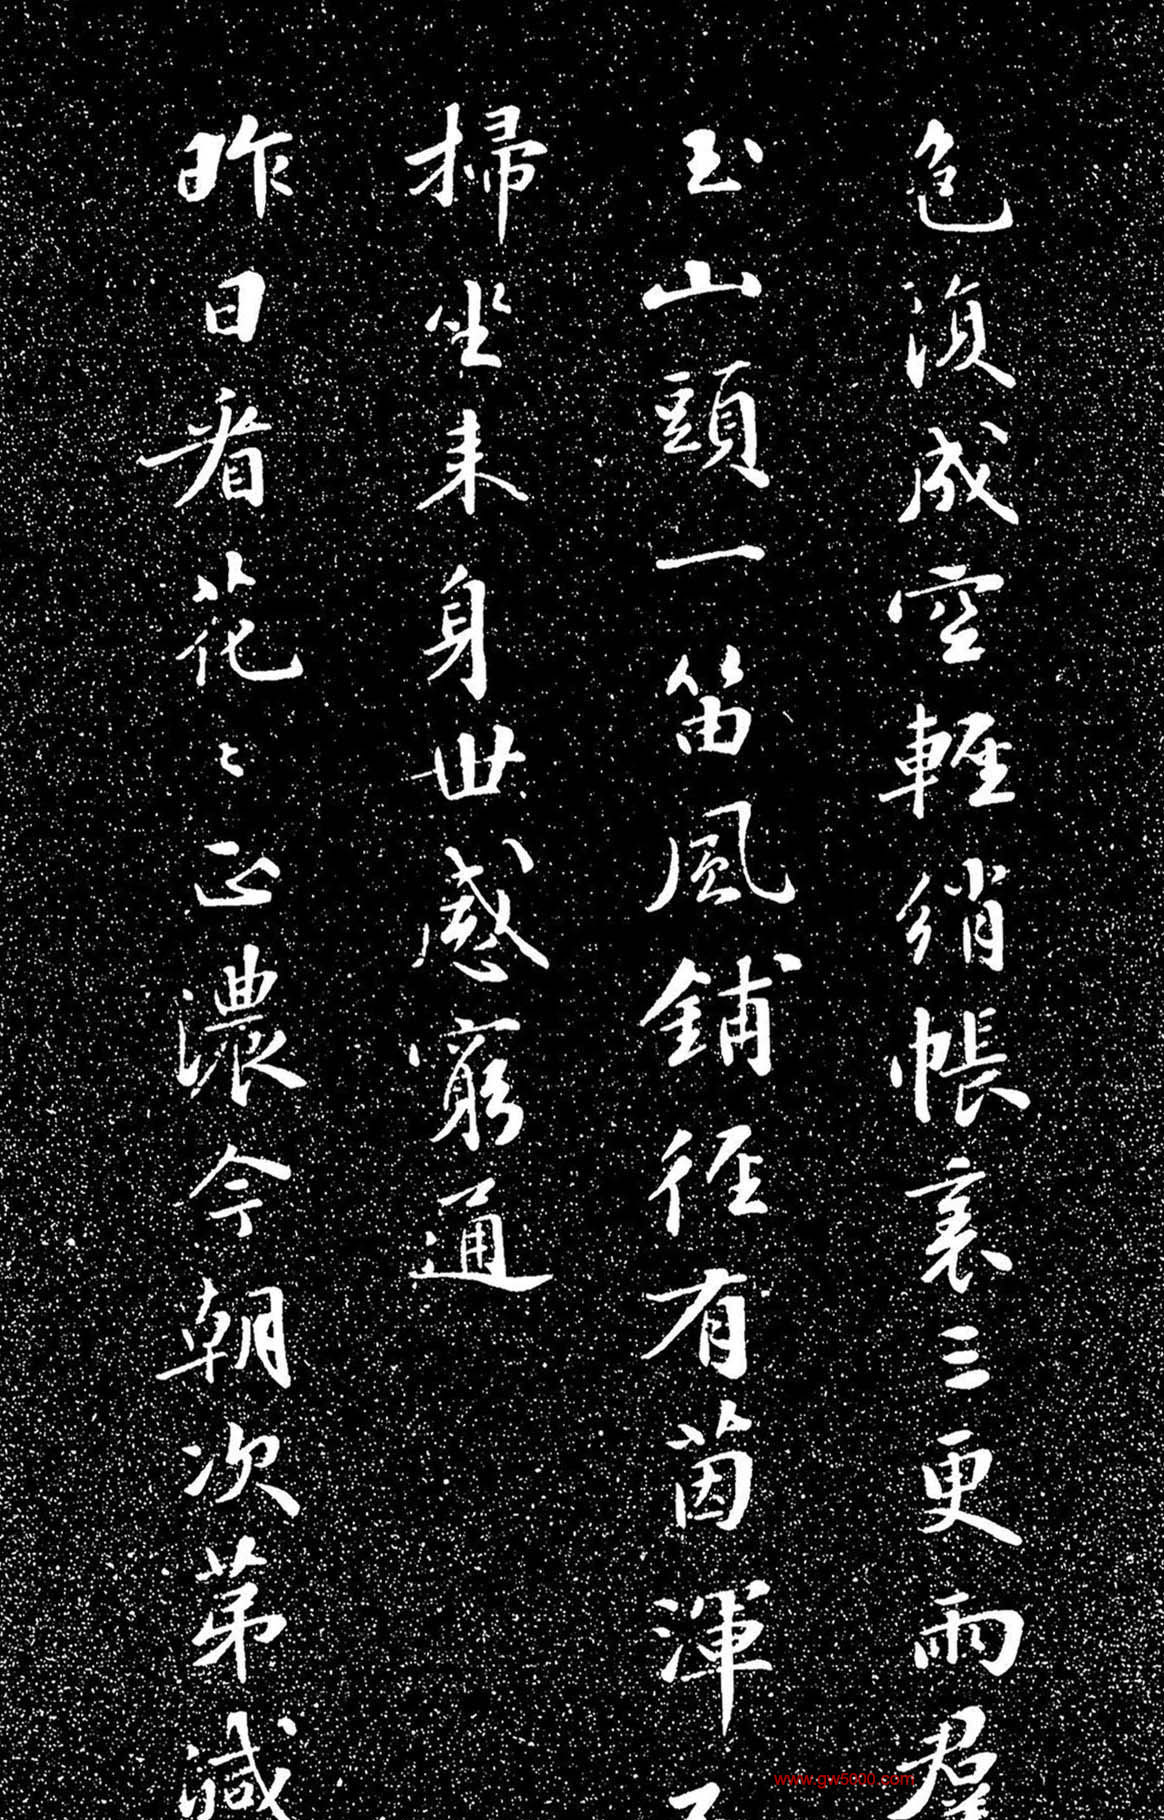 色湏成空輕綃帳裏三更雨羣
玉山頭一笛風鋪徑有茵渾
掃坐來身世感窮通
昨日看花〻正濃今朝次第減
www.gw5000.com